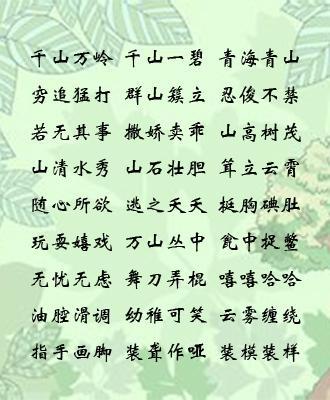 千山万岭 千山一碧 青海青山
穷追猛打 群山簇立 忍俊不禁
若无其事 撒娇卖乖 山高树茂
山清水秀 山石壮胆 耸立云霄
随心所欲 逃之夭夭 挺胸碘肚
玩耍嬉戏 万山丛中 瓮中捉鳖
无忧无虑 舞刀弄棍 嘻嘻哈哈
油腔滑调 幼稚可笑 云雾缠绕
指手画脚 装聋作哑 装模装样